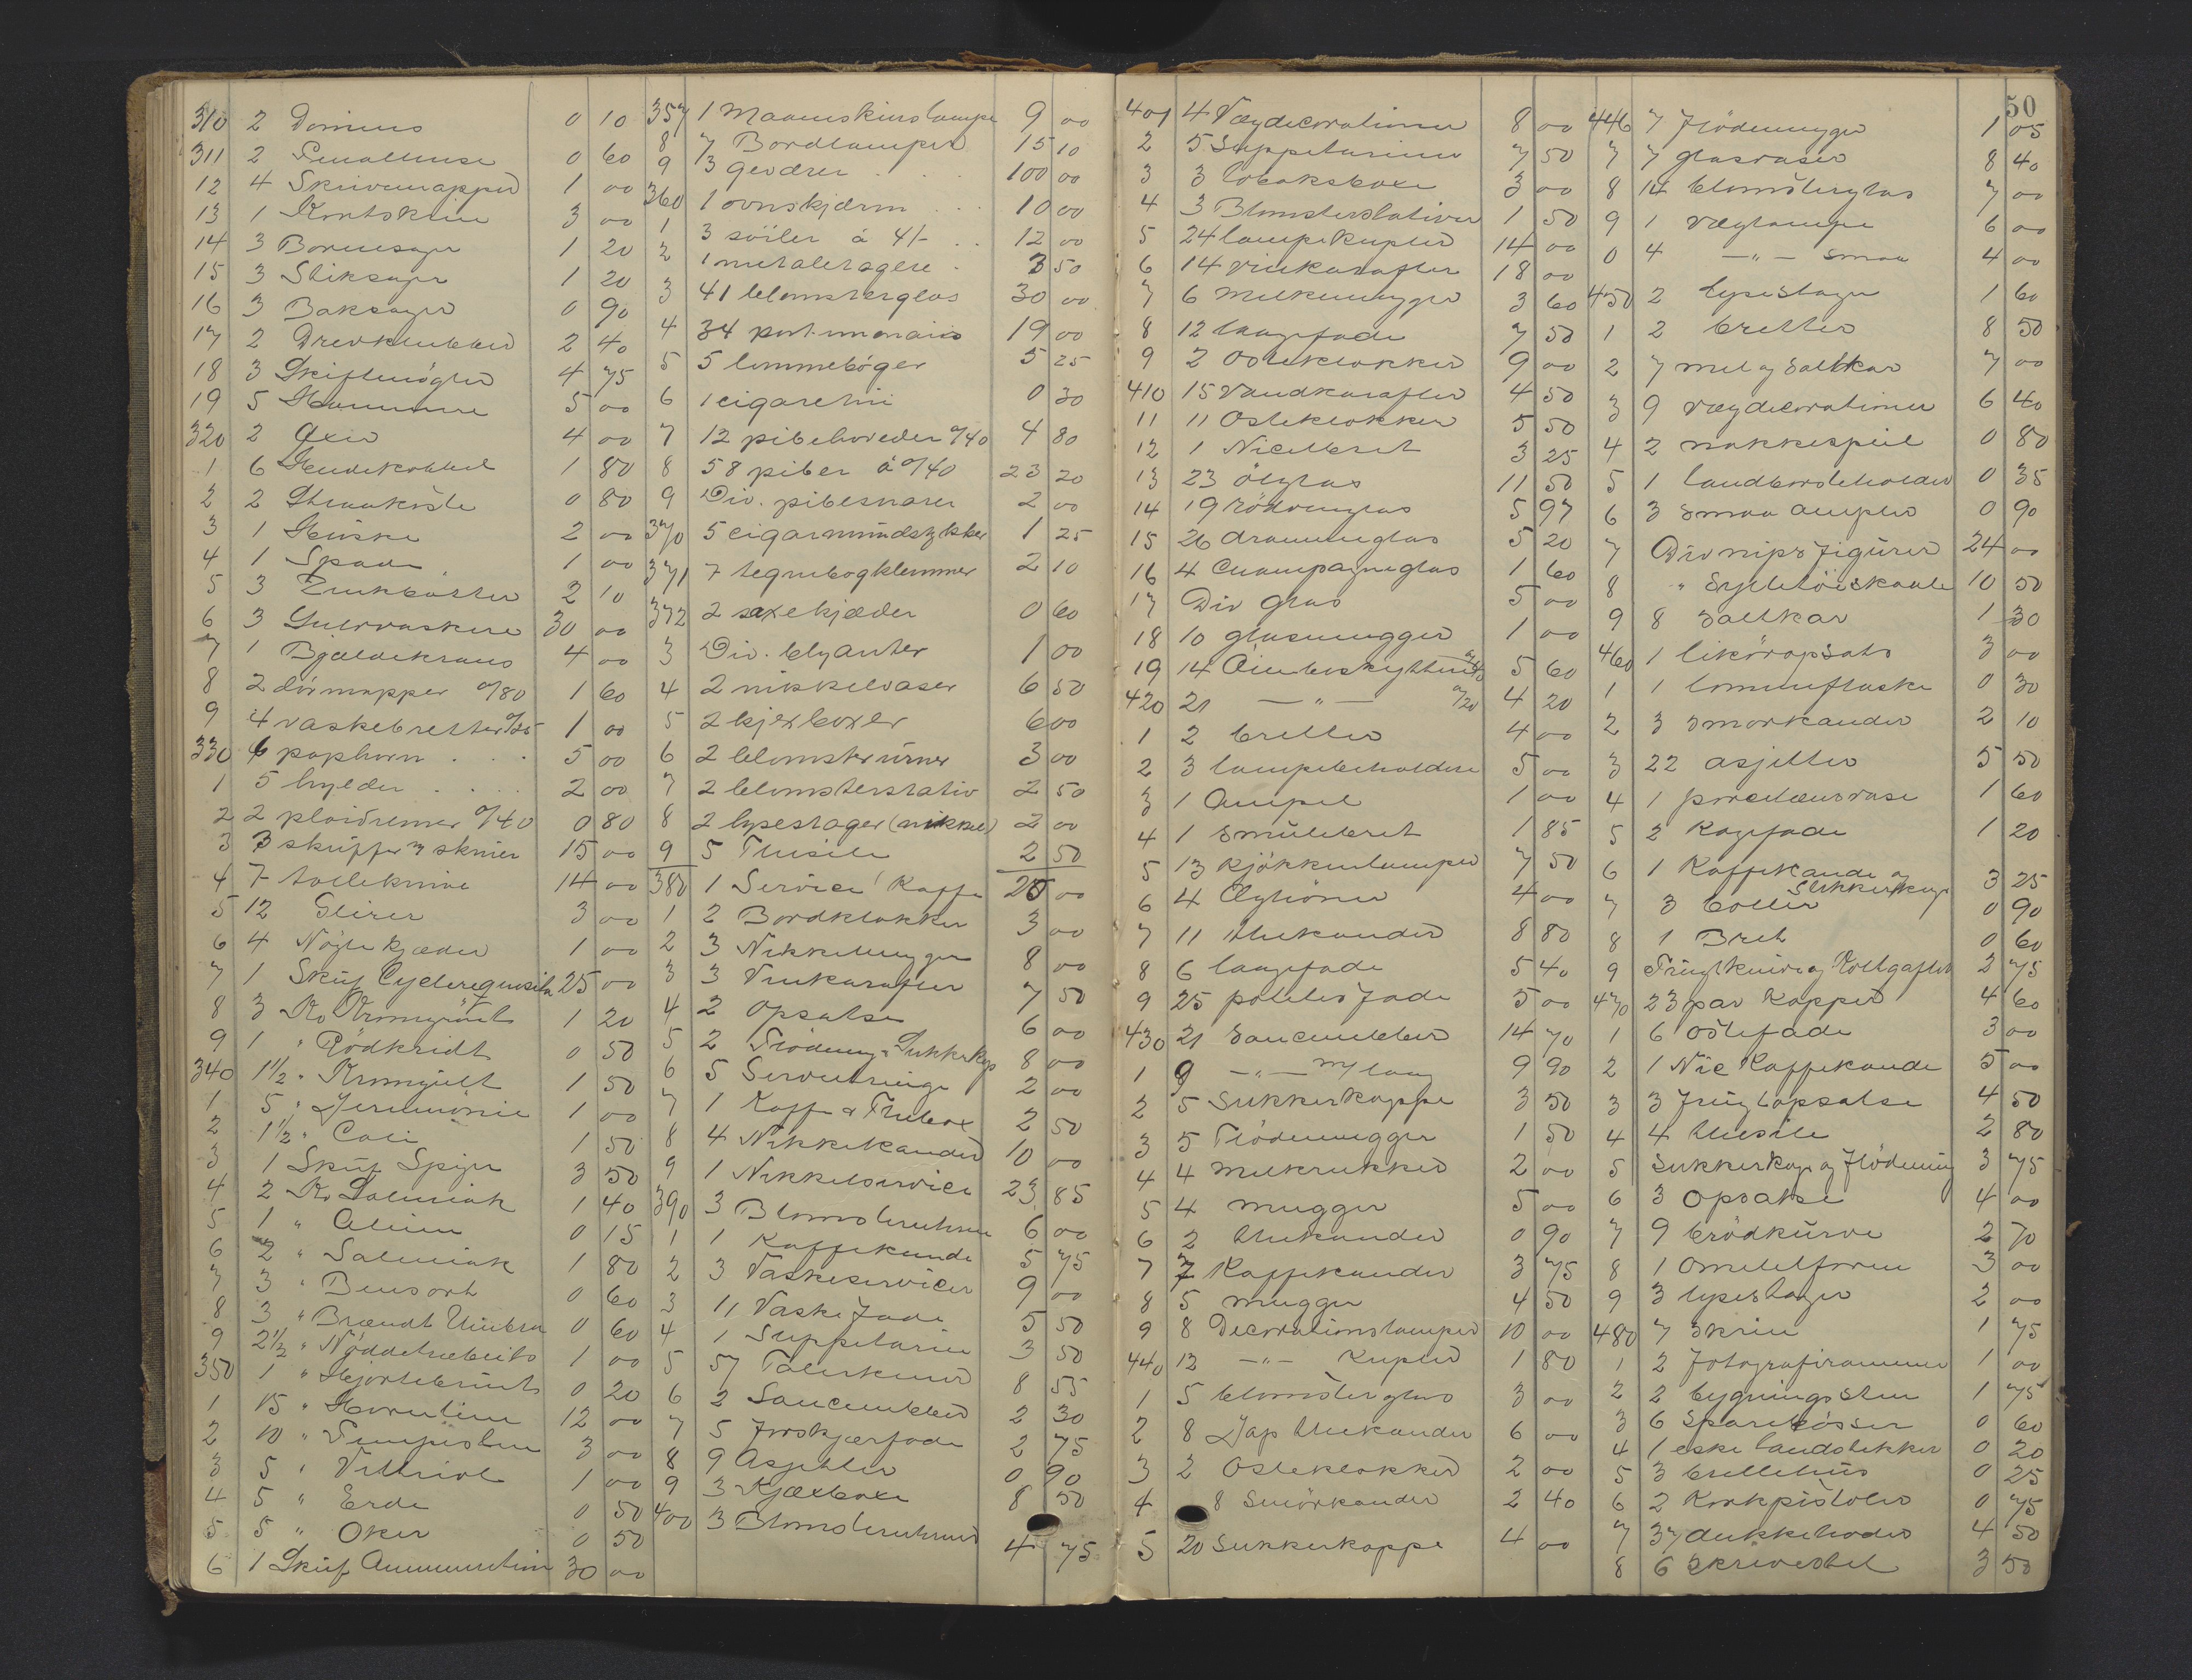 310 2 Dominos 0 10
311 2 Penalhuse 0 60
12 4 Skrivemapper 1 00
13 1 Kortskrin 3 00
14 3 Boresager 1 20
15 3 Stiksager 1 20
16 3 Baksager 0 90
17 2 Drevklubber 2 40
18 3 Skiftenøgler 4 75
19 5 Hammere 5 00
320 2 Øxer 4 00
1 6 Hundekobbel 1 80
2 2 Straakoste 0 80
3 1 Huske 2 00
4 1 Spade 1 00
5 3 Zinkbøtter 2 10
6 3 Gulvvaskere 30 00
7 1 Bjældekrans 4 00
8 2 dörmapper a/80 1 60
9 4 vaskebretter a/25 1 00
330 6 pophorn . . . 5 00
1 5 hylder . . . 2 00
2 2 plaidremer a/40 0 80
3 3 skuffer m skruer 15 00
4 7 tolleknive 14 00
5 12 Slirer 3 00
6 4 Nøglekjæder 1 00
7 1 Skuf Cyclerequisita 25 00
8 3 Ko Kromgrönt 1 20
9 1 " Rödkridt 0 50
340 1½ " Kromgult 1 50
1 5 " Jernmönie 1 00
2 1½ " Cali 1 50
3 1 Skuf Spiger 3 50
4 2 Ko Salmiak 1 40
5 1 " Alun 0 15
6 2 " Salmiak 1 80
7 3 " Bensort 0 60
8 3 " Brændt Umbra 0 60
9 2½ " Nøddetræbeits 1 00
350 1 " Hjortebrunts 0 20
1 15 " Hornlim 12 00
2 10 " Pimpsten 3 00
3 5 " Vitriol 1 00
4 5 " Erde 0 50
5 5 " Oker 0 50
6 1 Skuf Ammunition 30 00
357 1 Maaneskinslampe 9 00
8 7 Bordlamper 15 10
9 3 geværer . . . 100 00
360 1 ovnskjærm . . . 10 00
1 3 söiler á 4/- . . 12 00
2 1 metaletagere . 3 50
3 41 blomsterglas 30 00
4 34 portmonaies 19 00
5 5 lommebøger 5 25
6 1 cigaretui 0 30
7 12 pibehoveder a/40 4 80
8 58 piber á a/40 23 20
9 Div. pibesnorer 2 00
370 5 cigarmundstykker 1 25
371 7 tegnebogklemmer 2 10
372 2 saxekjæder 0 60
3 Div. blyanter 1 00
4 2 nikkelvaser 6 50
5 2 kjexboxer 6 00
6 2 blomsterurner 3 00
7 2 blomsterstativ 2 50
8 2 lysestager (nikkel) 2 00
9 5 Thesile 2 50
380 1 Service Kaffe 20 00
1 2 Bordklokker 3 00
2 3 Nikkelmugger 8 00
3 3 Vinkarafler 7 50
4 2 Opsatse 6 00
5 2 Flödemug & Sukkerkop 8 00
6 5 Servietringe 2 00
7 1 Kaffe & Thebox 2 50
8 4 Nikkelkander 10 00
9 1 Nikkelservice 23 85
390 3 Blomsterurner 6 00
1 1 Kaffekande 5 75
2 3 Vaskeservicer 9 00
3 11 Vaskefade 5 50
4 1 Suppeterin 3 50
5 57 Talerkener 8 55
6 2 Saucenebber 2 30
7 5 Forskjærfade 2 75
8 9 Asjetter 0 90
9 3 Kjæxboxe 8 50
400 3 Blomsterurner 4 75
50
401 4 Vægdecorationer 8 00
2 5 Suppeteriner 7 50
3 3 tobaksboxe 3 00
4 3 Blomsterstativer 1 50
5 24 lampekupler 14 00
6 14 vinkarafler 18 00
7 6 melkemugger 3 60
8 12 laagefade 7 50
9 2 Osteklokker 9 00
410 15 Vandkarafler 4 50
11 11 Osteklokker 5 50
12 1 Nicelbret 3 25
13 23 ölglas 11 50
14 19 rödvinglas 5 97
15 26 dramm­eglas 5 20
16 4 Champagneglas 1 60
17 Div Glas 5 00
18 10 glasmugger 1 00
19 14 Öienbeskyttere a/40 5 60
420 21 — " — a/20 4 20
1 2 bretter 4 00
2 3 lampebeholdere 5 00
3 1 Ampel 1 00
4 1 Smulebret 1 85
5 13 kjökkenlamper 7 50
6 4 Elghörner 4 00
7 11 thekander 8 80
8 6 laagefade 5 40
9 25 potetes fade 5 00
430 21 Saucenebber 14 70
1 9 — " — m/ laag 9 90
2 5 Sukkerkoppe 3 50
3 5 Flödemugger 1 50
4 4 melkrukker 2 00
5 4 mugger 5 00
6 2 thekander 0 90
7 7 Kaffekander 3 75
8 5 mugger 4 50
9 8 Decorationslamper 10 00
440 12 — " — Kupler 1 80
1 5 blomsterglas 3 00
2 8 Jap thekander 6 00
3 2 Osteklokker 2 00
4 8 Smörkander 2 40
5 20 Sukkerkoppe 4 00
446 7 Flödemugger 1 05
7 7 glasvaser 8 40
8 14 blomsterglas 7 00
9 1 væglampe 6 00
0 4 — " — smaa 4 00
450 2 lysestager 1 60
1 2 bretter 8 50
2 7 mel og Saltkar 7 00
3 9 vægdecorationer 6 40
4 2 nakkespeil 0 80
5 1 tandbørsteholder 0 35
6 3 smaa ampler 0 90
7 Div nips figurer 24 00
8 " Syltetöiskaale 10 50
9 8 Saltkar 1 30
460 1 likøropsats 3 00
1 1 lommeflaske 0 30
2 3 smørkander 2 10
3 22 asjetter 5 50
4 1 porcelænsvase 1 60
5 2 Kagefade 1 20
6 1 Kaffekande og Sukkerkop 3 25
7 3 boller 0 90
8 1 Bret 0 60
9 Frugtknive og Koltgafler 2 75
470 23 par Kopper 4 60
1 6 Ostefade 3 00
2 1 Nic Kaffekande 5 00
3 3 Frugtopsatse 4 50
4 4 thesile 2 80
5 Sukkerkop og Flödemug 3 75
6 3 Opsatse 4 00
7 9 brödkurve 2 70
8 1 Omeletform 3 00
9 3 lysestager 2 00
480 7 Skrin 1 75
1 2 Fotografirammer 1 00
2 2 bygningssten 1 75
3 6 Sparebøsser 0 60
4 1 eske tandstikker 0 20
5 3 brillehus 0 25
6 2 Korkpistoler 0 75
7 37 dukkehoder 4 50
8 6 Skrivestel 3 50